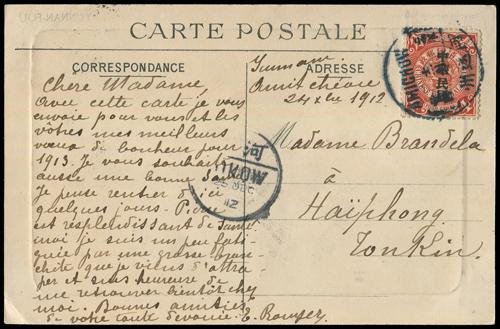 CARTE POSTALE
CORRESPONDANCE
ADRESSE
Chère Madame,
Avec cette carte je vous
envoie pour vous et les
vôtres mes meilleurs
vœux de bonheur pour
1913. Je vous souhaite
aussi une bonne santé
Je pense rentrer d'ici
quelques jours. Pierre
est resplendissant de santé
moi je suis un peu fati-
guée par une grosse bron-
chite que je viens d'attra-
per et suis heureuse de
me retrouver bientôt chez
moi. Bonnes amitiés
de votre toute dévouée. E.
Yunnan
Amitchéou
24 Xbre 1912
Madame Brandela
à
Haïphong
Tonkin
中華民國
河
HOKOW
DEC
12